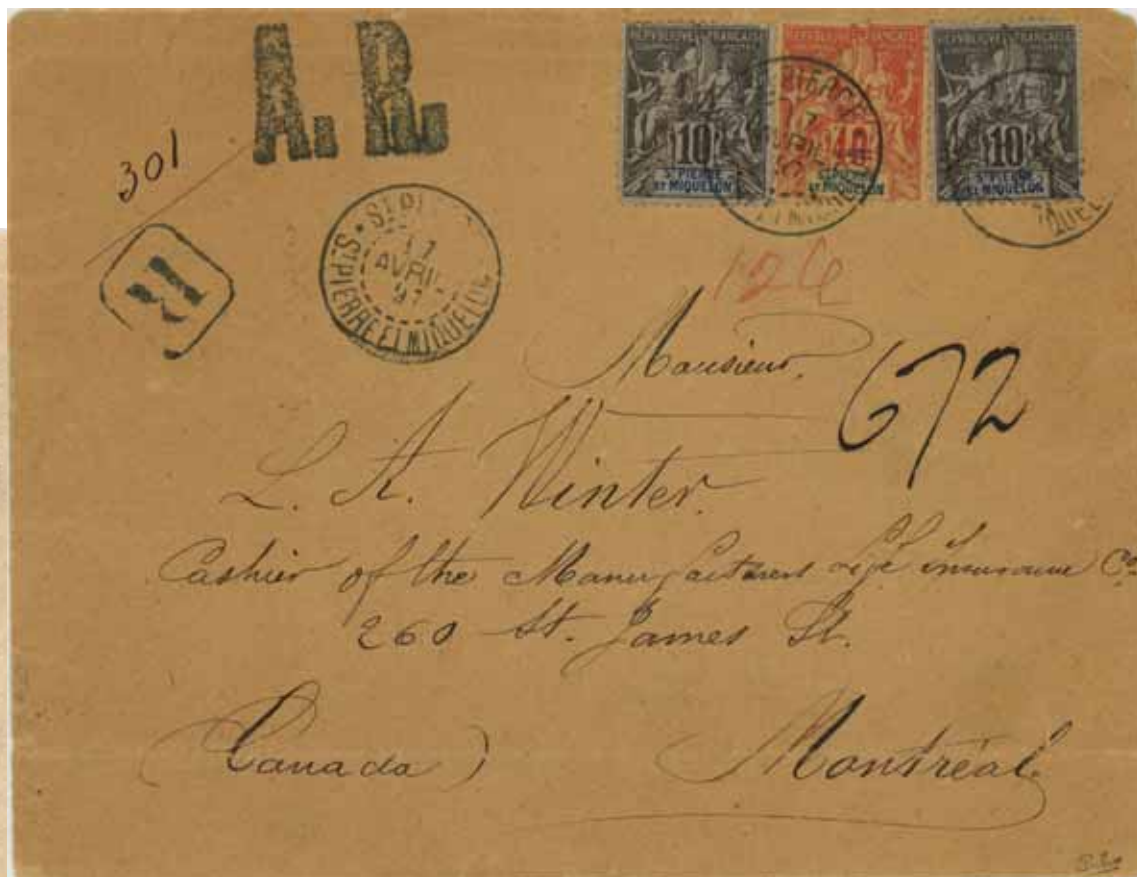 A. R.
RÉPUBLIQUE FRANÇAISE
10
ST PIERRE
ET MIQUELON
RÉPUBLIQUE FRANÇAISE
40
ST PIERRE
ET MIQUELON
RÉPUBLIQUE FRANÇAISE
10
ST PIERRE
ET MIQUELON
301
R
17
AVRIL
ST PIERRE ET MIQUELON
Monsieur
672
L. A. Winter.
Cashier of the Manufacturers Life insurance Co
260 St. James St.
(Canada)
Montréal